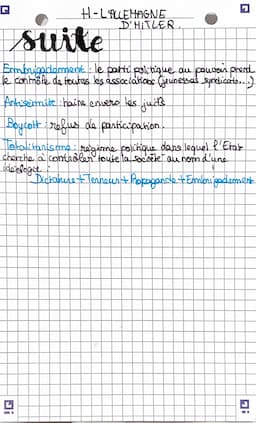 H - L'ALLEMAGNE
D'HITLER.
suite
Embrigadement : le parti politique au pouvoir prend
le contrôle de toutes les associations (jeunesses, syndicats...)
Antisémite : haine envers les juifs
Boycott : refus de participation.
Totalitarisme : régime politique dans lequel l'Etat
cherche à contrôler toute la société au nom d'une
idéologie :
Dictature + Terreur + Propagande + Embrigadement